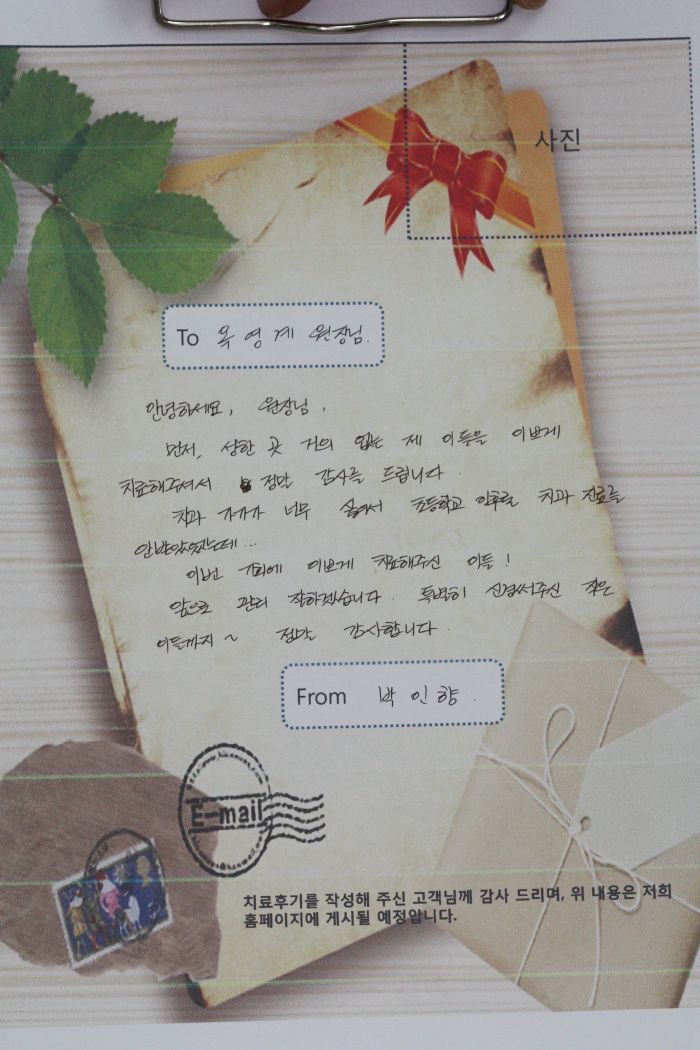 사진
To 옥영계 원장님.
안녕하세요, 원장님,
먼저, 성한 곳 거의 없는 제 이들을 이쁘게
치료해주셔서 정말 감사를 드립니다.
치과 가기가 너무 싫어서 초등학교 이후로 치과 진료를
안받았었는데...
이번 기회에 이쁘게 치료해주신 이들!
앞으로 관리 잘하겠습니다. 특별히 신경써주신 작은
이들까지~ 정말 감사합니다.
From 박인향.
E-mail
치료후기를 작성해 주신 고객님께 감사 드리며, 위 내용은 저희
홈페이지에 게시될 예정입니다.